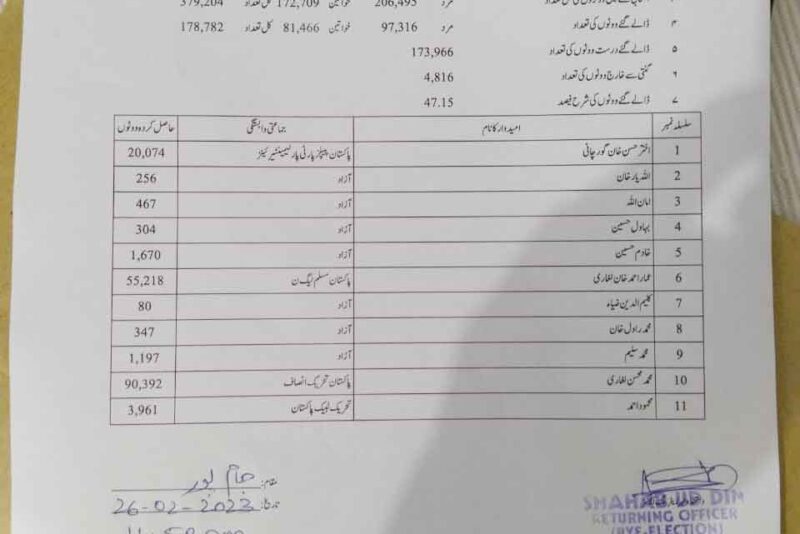 206,495 خواتین 172,709 کل تعداد 379,204
۴ ڈالے گئے ووٹوں کی تعداد مرد 97,316 خواتین 81,466 کل تعداد 178,782
۵ ڈالے گئے درست ووٹوں کی تعداد 173,966
۶ گنتی سے خارج ووٹوں کی تعداد 4,816
۷ ڈالے گئے ووٹوں کی شرح فیصد 47.15
سلسلہ نمبر امیدوار کا نام جماعتی وابستگی حاصل کردہ ووٹوں
1 اختر حسن خان گورچانی پاکستان پیپلز پارٹی پارلیمینٹیرینز 20,074
2 اللہ یار خان آزاد 256
3 امان اللہ آزاد 467
4 بہاول حسین آزاد 304
5 خادم حسین آزاد 1,670
6 عمار احمد خان لغاری پاکستان مسلم لیگ ن 55,218
7 کلیم الدین ضیاء آزاد 80
8 محمد راول خان آزاد 347
9 محمد سلیم آزاد 1,197
10 محمد محسن لغاری پاکستان تحریک انصاف 90,392
11 محمود احمد تحریک لبیک پاکستان 3,961
مقام: جام پور
تاریخ: 26-02-2023
SHAHAB UD DIN
RETURNING OFFICER
(BYE-ELECTION)